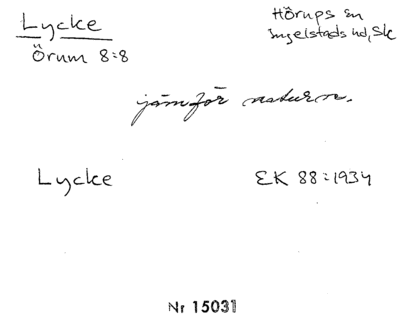 Lycke
Hörups sn
Örum 8:8
Ingelstads hd, Sk
jämför naturn.
Lycke
EK 88:1934
Nr 15031